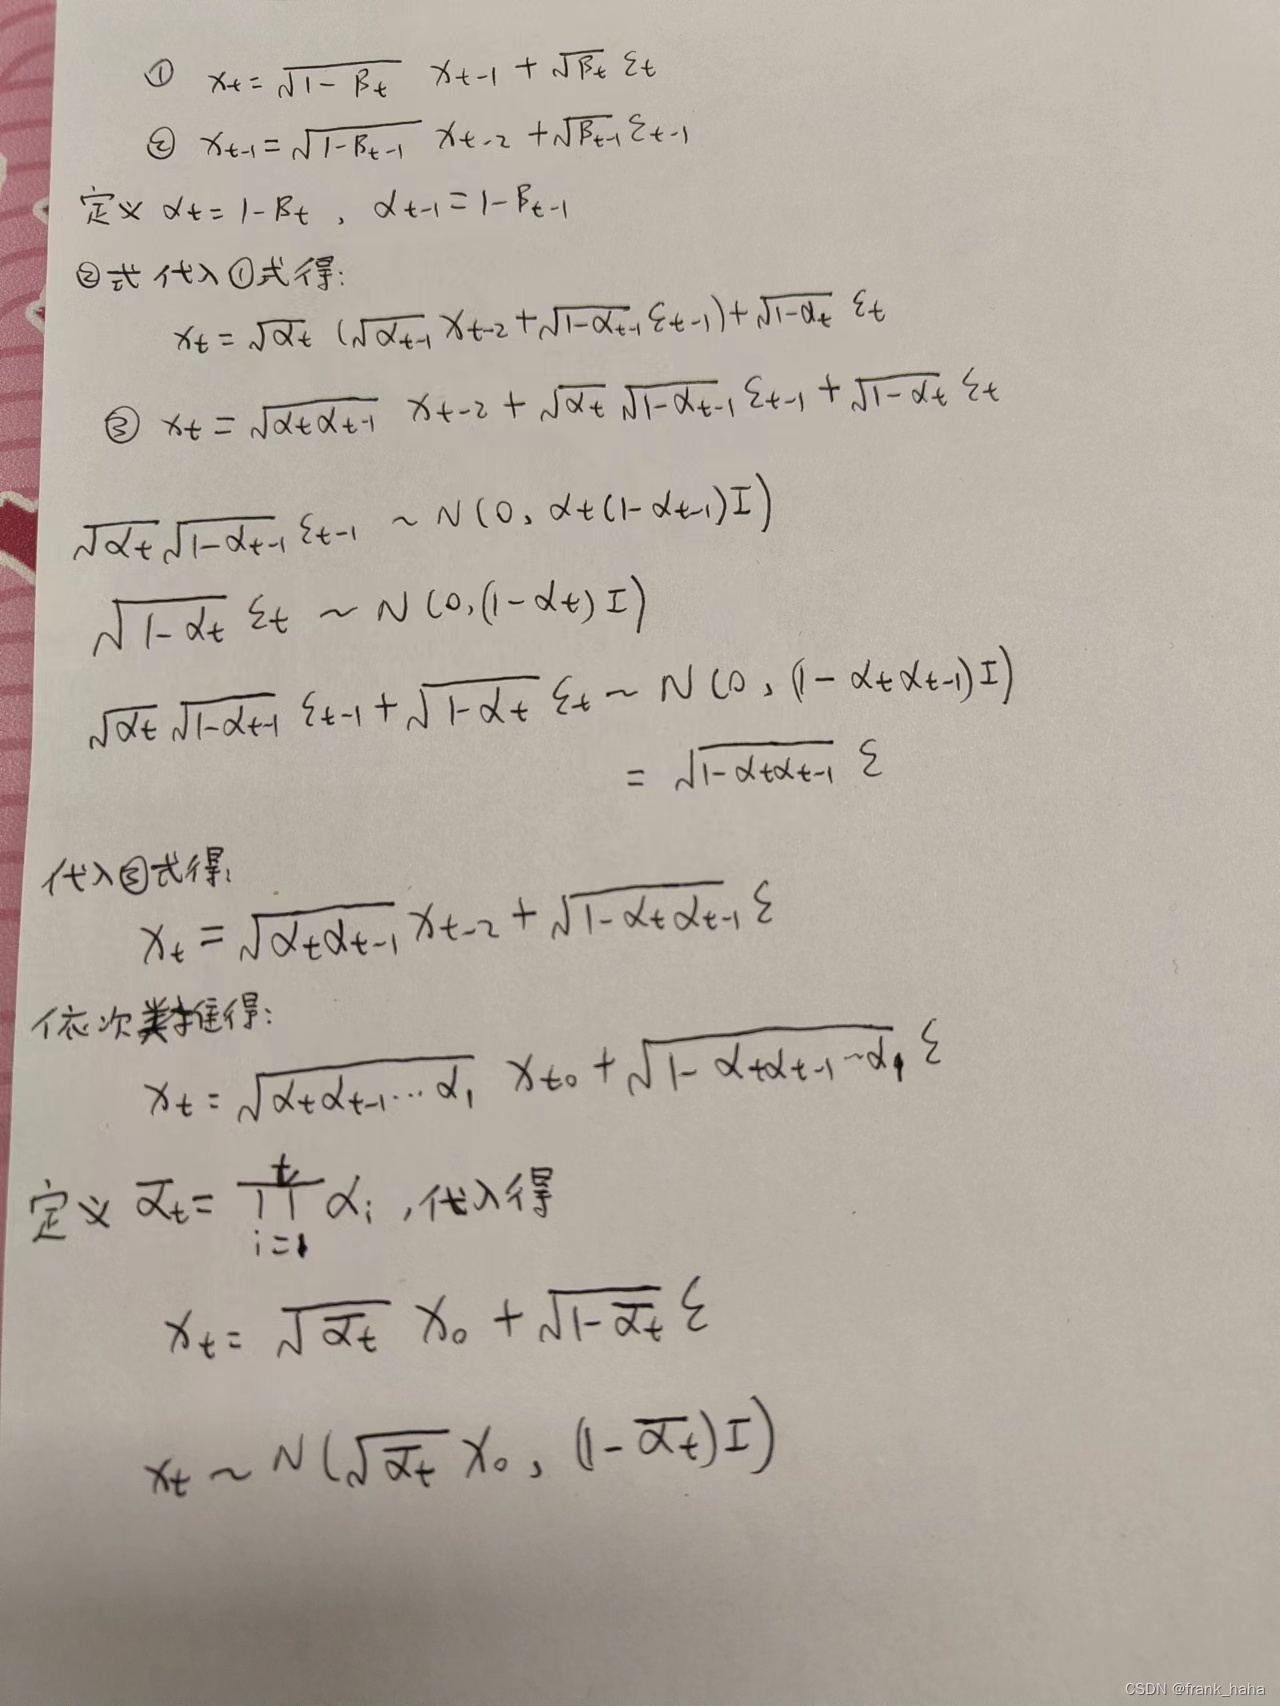 ① xt = √(1-βt) xt-1 + √βt εt
② xt-1 = √(1-βt-1) xt-2 + √βt-1 εt-1
定义 αt = 1-βt , αt-1 = 1-βt-1
②式代入①式得:
xt = √αt (√αt-1 xt-2 + √(1-αt-1) εt-1) + √(1-αt) εt
③ xt = √(αtαt-1) xt-2 + √αt √(1-αt-1) εt-1 + √(1-αt) εt
√αt √(1-αt-1) εt-1 ~ N(0, αt(1-αt-1)I)
√(1-αt) εt ~ N(0,(1-αt)I)
√αt √(1-αt-1) εt-1 + √(1-αt) εt ~ N(0, (1-αtαt-1)I)
= √(1-αtαt-1) ε
代入③式得:
xt = √(αtαt-1) xt-2 + √(1-αtαt-1) ε
依次类推得:
xt = √(αtαt-1…α1) xt0 + √(1-αtαt-1~α1) ε
定义 ᾱt = ∏(i=1→t) αi , 代入得
xt = √ᾱt x0 + √(1-ᾱt) ε
xt ~ N(√ᾱt x0, (1-ᾱt)I)
CSDN @frank_haha